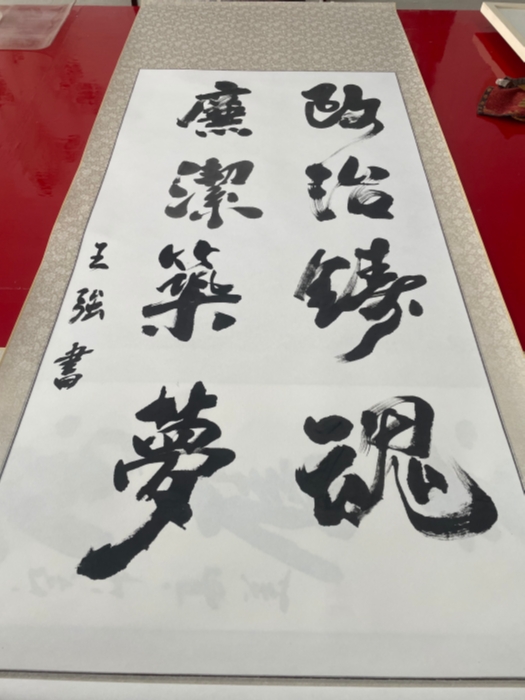 政治鑄魂
廉潔築夢
王強書